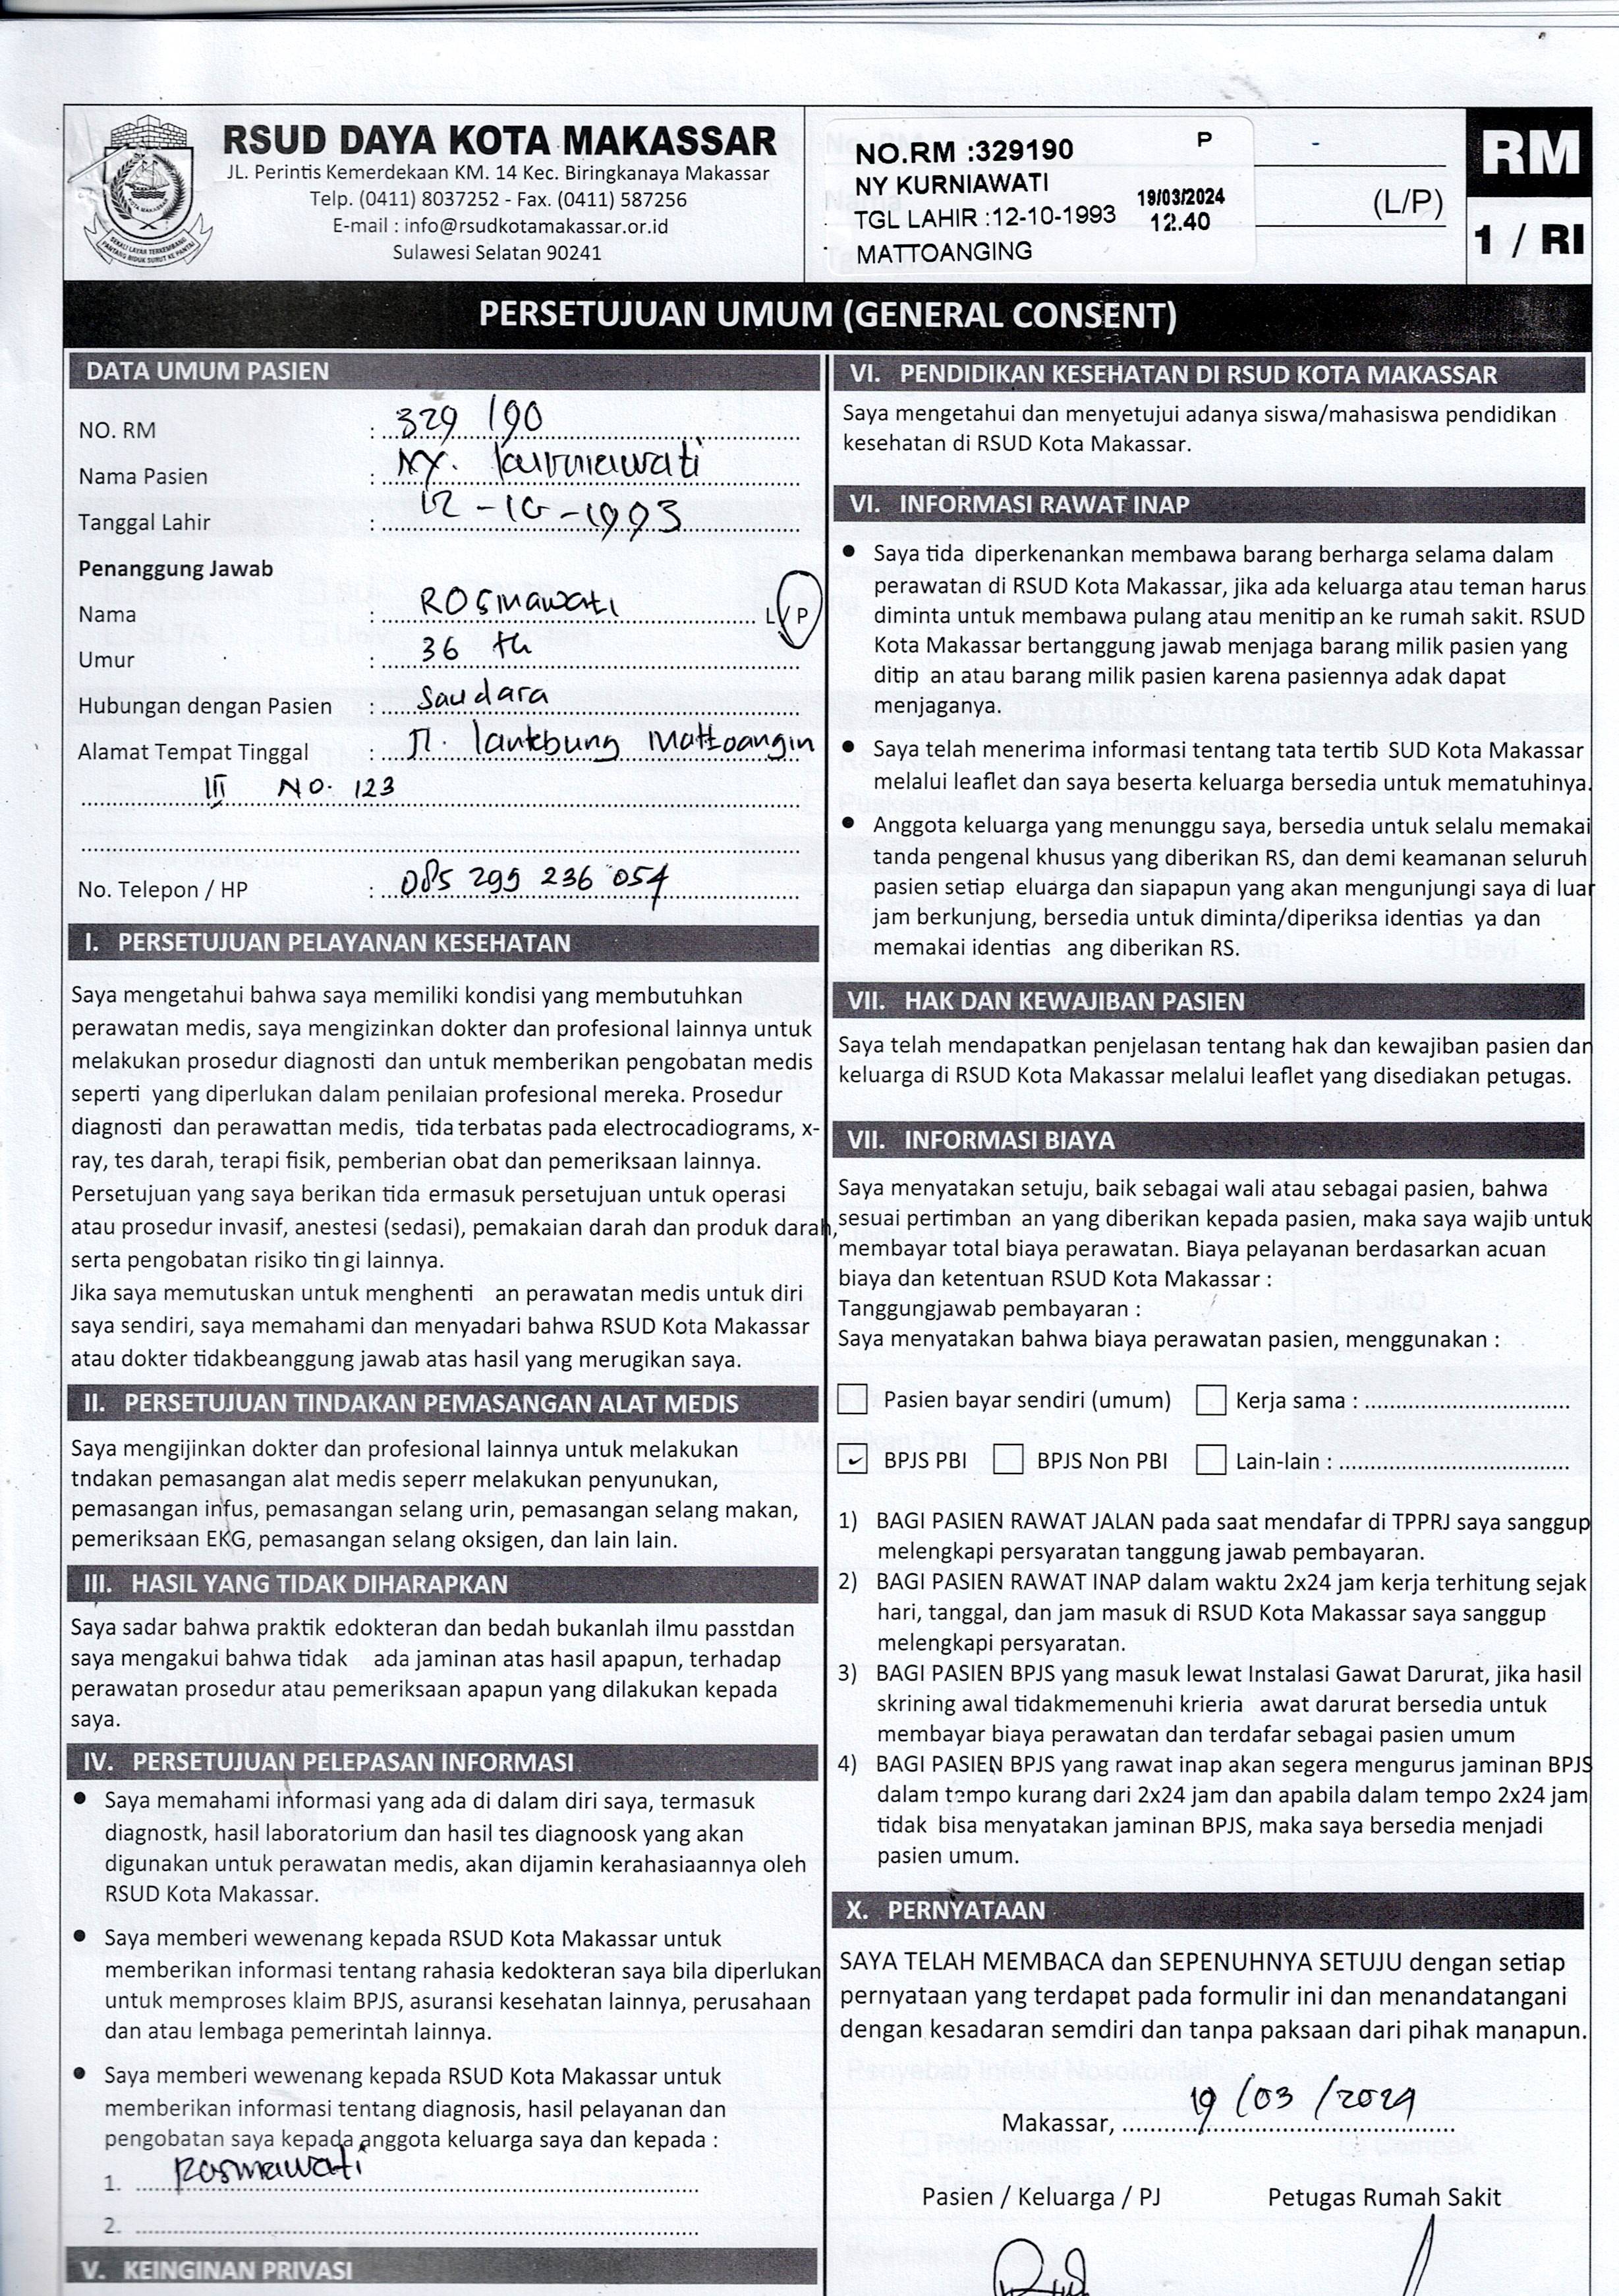 RSUD DAYA KOTA MAKASSAR
JL. Perintis Kemerdekaan KM. 14 Kec. Biringkanaya Makassar
Telp. (0411) 8037252 - Fax. (0411) 587256
E-mail : info@rsudkotamakassar.or.id
Sulawesi Selatan 90241
NO.RM :329190 P
NY KURNIAWATI
TGL LAHIR :12-10-1993
19/03/2024
12.40
MATTOANGING
(L/P)
RM
1 / RI
PERSETUJUAN UMUM (GENERAL CONSENT)
DATA UMUM PASIEN
NO. RM : 329 190
Nama Pasien : NY. kurniawati
Tanggal Lahir : 12 - 10 - 1993
Penanggung Jawab
Nama : ROSmawati L/P
Umur : 36 th
Hubungan dengan Pasien : Saudara
Alamat Tempat Tinggal : Jl. lantebung Mattoangin
III NO. 123
No. Telepon / HP : 085 299 236 054
I. PERSETUJUAN PELAYANAN KESEHATAN
Saya mengetahui bahwa saya memiliki kondisi yang membutuhkan
perawatan medis, saya mengizinkan dokter dan profesional lainnya untuk
melakukan prosedur diagnosti dan untuk memberikan pengobatan medis
seperti yang diperlukan dalam penilaian profesional mereka. Prosedur
diagnosti dan perawattan medis, tida terbatas pada electrocadiograms, x-
ray, tes darah, terapi fisik, pemberian obat dan pemeriksaan lainnya.
Persetujuan yang saya berikan tida ermasuk persetujuan untuk operasi
atau prosedur invasif, anestesi (sedasi), pemakaian darah dan produk darah,
serta pengobatan risiko tin gi lainnya.
Jika saya memutuskan untuk menghenti an perawatan medis untuk diri
saya sendiri, saya memahami dan menyadari bahwa RSUD Kota Makassar
atau dokter tidakbeanggung jawab atas hasil yang merugikan saya.
II. PERSETUJUAN TINDAKAN PEMASANGAN ALAT MEDIS
Saya mengijinkan dokter dan profesional lainnya untuk melakukan
tndakan pemasangan alat medis seperr melakukan penyunukan,
pemasangan infus, pemasangan selang urin, pemasangan selang makan,
pemeriksaan EKG, pemasangan selang oksigen, dan lain lain.
III. HASIL YANG TIDAK DIHARAPKAN
Saya sadar bahwa praktik edokteran dan bedah bukanlah ilmu passtdan
saya mengakui bahwa tidak ada jaminan atas hasil apapun, terhadap
perawatan prosedur atau pemeriksaan apapun yang dilakukan kepada
saya.
IV. PERSETUJUAN PELEPASAN INFORMASI
● Saya memahami informasi yang ada di dalam diri saya, termasuk
diagnostk, hasil laboratorium dan hasil tes diagnoosk yang akan
digunakan untuk perawatan medis, akan dijamin kerahasiaannya oleh
RSUD Kota Makassar.
● Saya memberi wewenang kepada RSUD Kota Makassar untuk
memberikan informasi tentang rahasia kedokteran saya bila diperlukan
untuk memproses klaim BPJS, asuransi kesehatan lainnya, perusahaan
dan atau lembaga pemerintah lainnya.
● Saya memberi wewenang kepada RSUD Kota Makassar untuk
memberikan informasi tentang diagnosis, hasil pelayanan dan
pengobatan saya kepada anggota keluarga saya dan kepada :
1. Rosmawati
2.
V. KEINGINAN PRIVASI
VI. PENDIDIKAN KESEHATAN DI RSUD KOTA MAKASSAR
Saya mengetahui dan menyetujui adanya siswa/mahasiswa pendidikan
kesehatan di RSUD Kota Makassar.
VI. INFORMASI RAWAT INAP
● Saya tida diperkenankan membawa barang berharga selama dalam
perawatan di RSUD Kota Makassar, jika ada keluarga atau teman harus
diminta untuk membawa pulang atau menitip an ke rumah sakit. RSUD
Kota Makassar bertanggung jawab menjaga barang milik pasien yang
ditip an atau barang milik pasien karena pasiennya adak dapat
menjaganya.
● Saya telah menerima informasi tentang tata tertib SUD Kota Makassar
melalui leaflet dan saya beserta keluarga bersedia untuk mematuhinya.
● Anggota keluarga yang menunggu saya, bersedia untuk selalu memakai
tanda pengenal khusus yang diberikan RS, dan demi keamanan seluruh
pasien setiap eluarga dan siapapun yang akan mengunjungi saya di luar
jam berkunjung, bersedia untuk diminta/diperiksa identias ya dan
memakai identias ang diberikan RS.
VII. HAK DAN KEWAJIBAN PASIEN
Saya telah mendapatkan penjelasan tentang hak dan kewajiban pasien dan
keluarga di RSUD Kota Makassar melalui leaflet yang disediakan petugas.
VII. INFORMASI BIAYA
Saya menyatakan setuju, baik sebagai wali atau sebagai pasien, bahwa
sesuai pertimban an yang diberikan kepada pasien, maka saya wajib untuk
membayar total biaya perawatan. Biaya pelayanan berdasarkan acuan
biaya dan ketentuan RSUD Kota Makassar :
Tanggungjawab pembayaran :
Saya menyatakan bahwa biaya perawatan pasien, menggunakan :
Pasien bayar sendiri (umum) Kerja sama :
✓ BPJS PBI BPJS Non PBI Lain-lain :
1) BAGI PASIEN RAWAT JALAN pada saat mendafar di TPPRJ saya sanggup
melengkapi persyaratan tanggung jawab pembayaran.
2) BAGI PASIEN RAWAT INAP dalam waktu 2x24 jam kerja terhitung sejak
hari, tanggal, dan jam masuk di RSUD Kota Makassar saya sanggup
melengkapi persyaratan.
3) BAGI PASIEN BPJS yang masuk lewat Instalasi Gawat Darurat, jika hasil
skrining awal tidakmemenuhi krieria awat darurat bersedia untuk
membayar biaya perawatan dan terdafar sebagai pasien umum
4) BAGI PASIEN BPJS yang rawat inap akan segera mengurus jaminan BPJS
dalam tempo kurang dari 2x24 jam dan apabila dalam tempo 2x24 jam
tidak bisa menyatakan jaminan BPJS, maka saya bersedia menjadi
pasien umum.
X. PERNYATAAN
SAYA TELAH MEMBACA dan SEPENUHNYA SETUJU dengan setiap
pernyataan yang terdapat pada formulir ini dan menandatangani
dengan kesadaran semdiri dan tanpa paksaan dari pihak manapun.
Makassar, 19 / 03 / 2024
Pasien / Keluarga / PJ Petugas Rumah Sakit